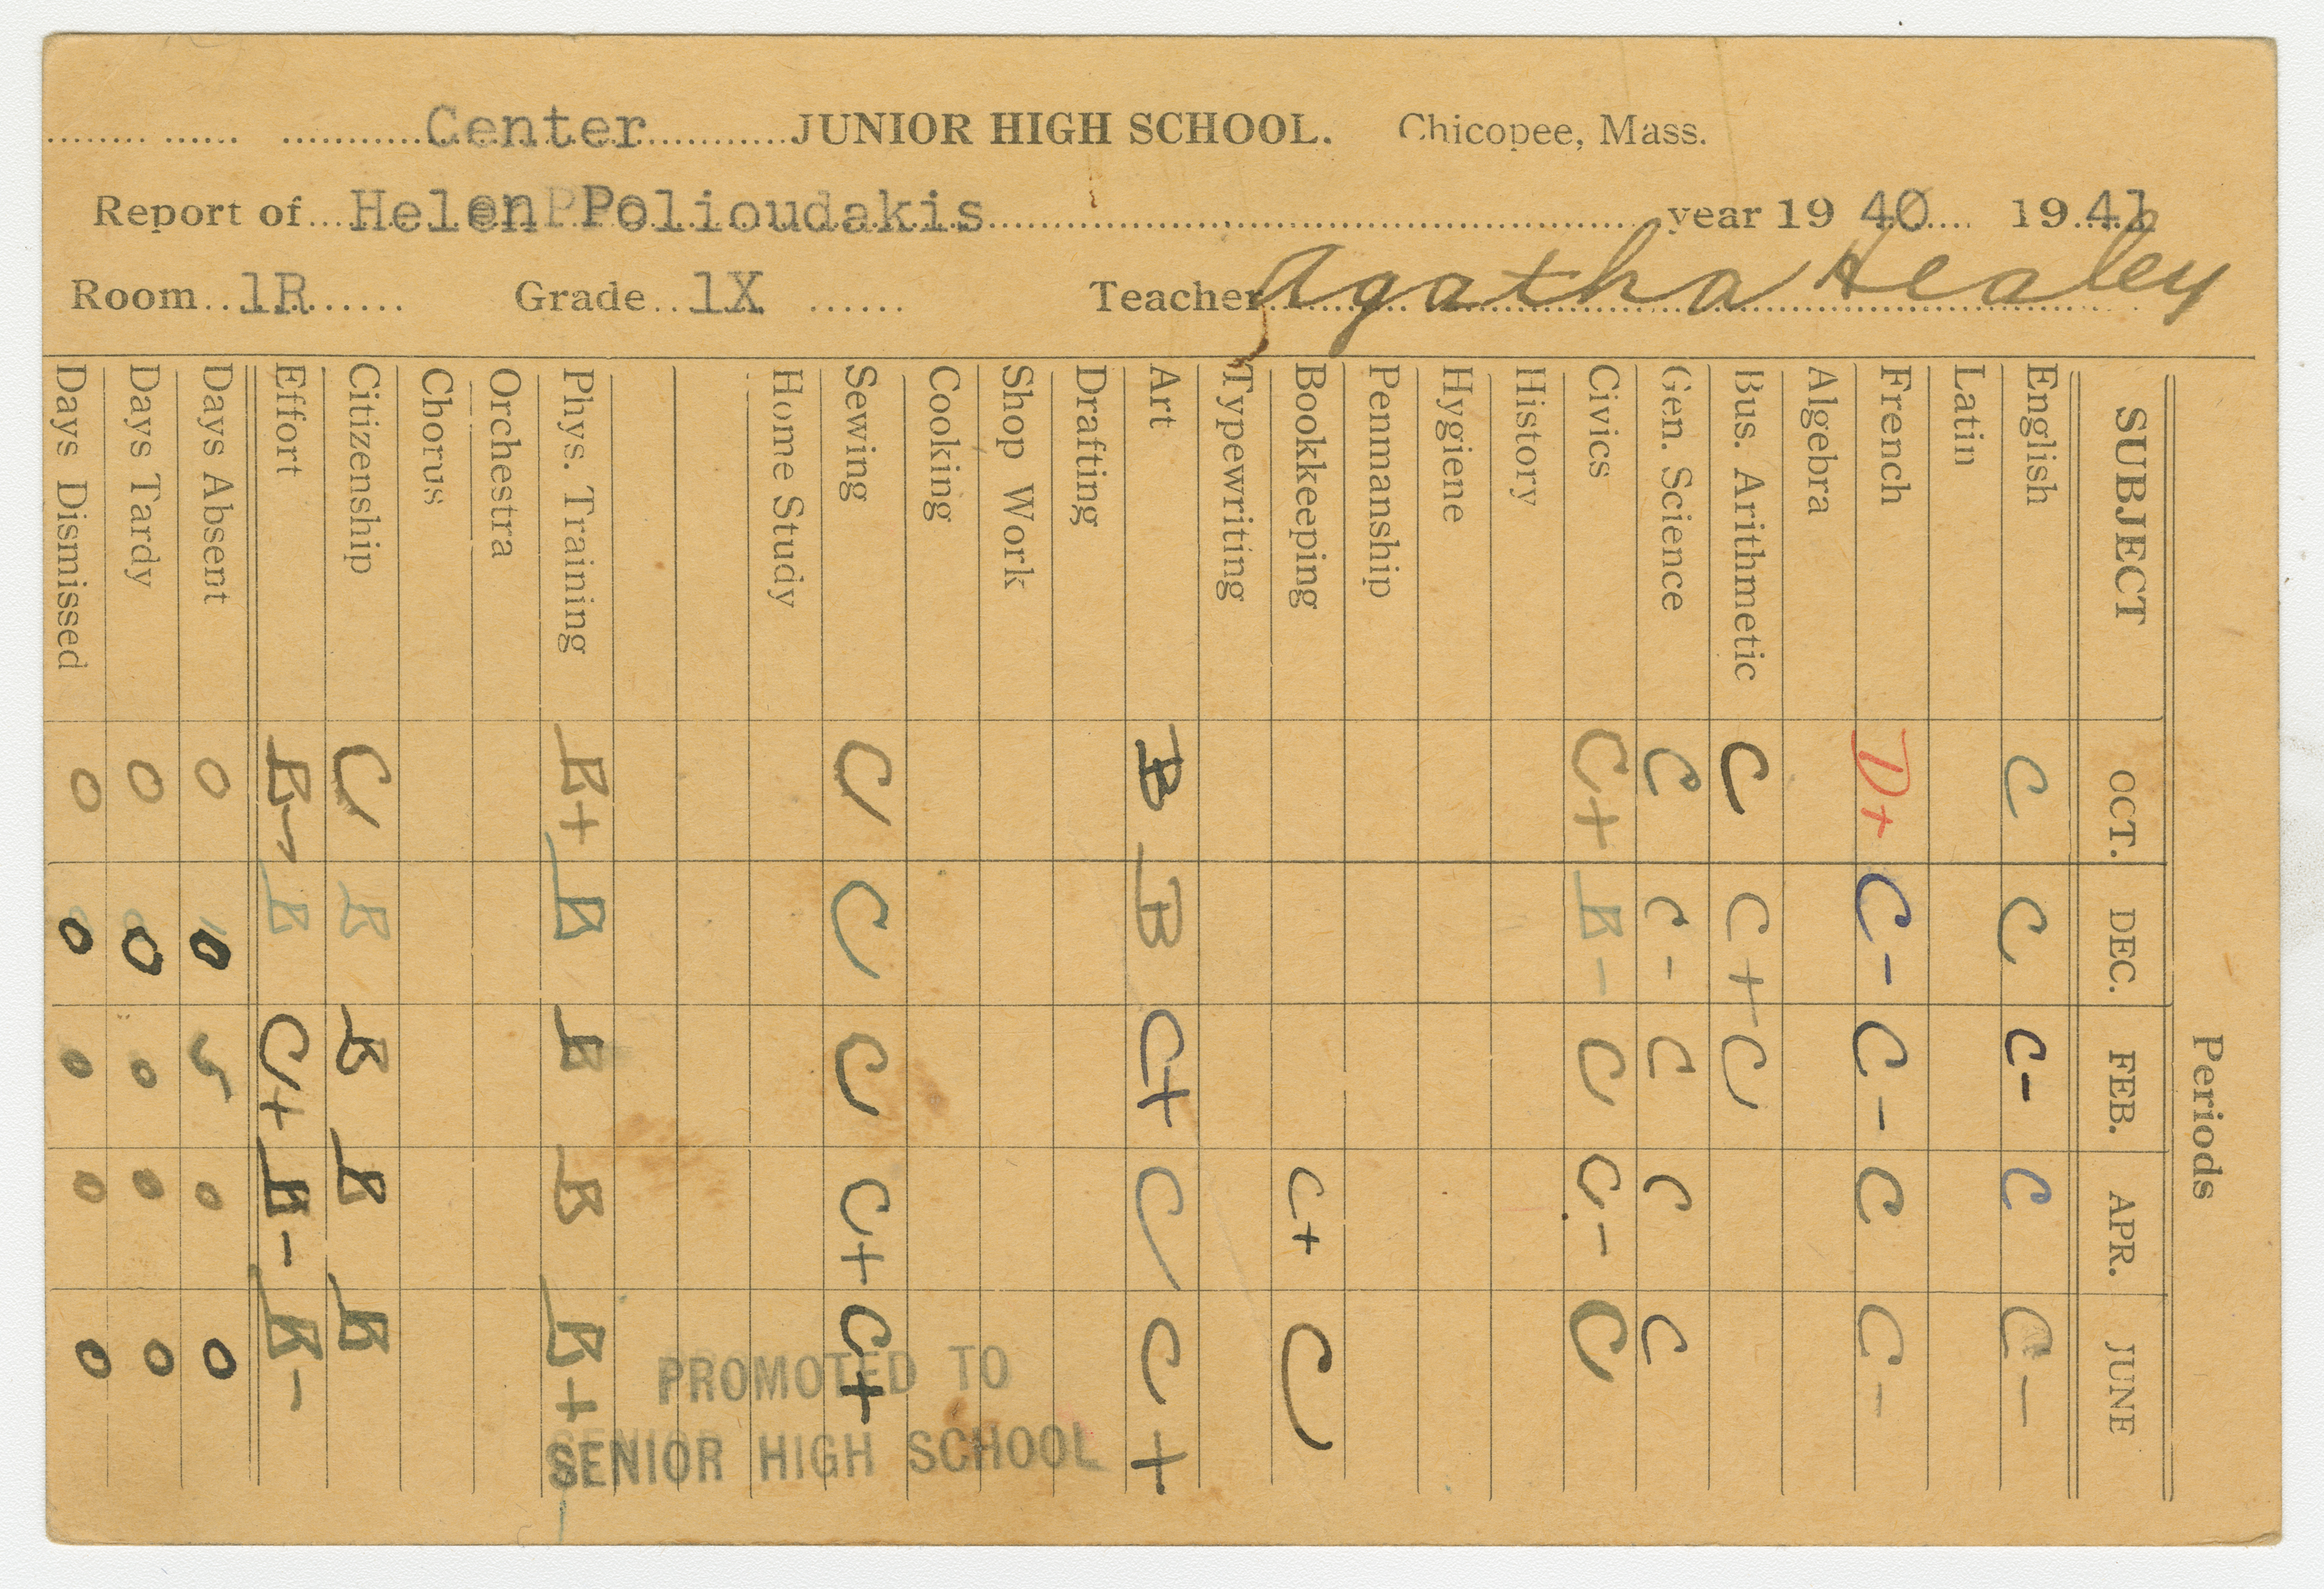 Center JUNIOR HIGH SCHOOL. Chicopee, Mass.
Report of Helen Polioudakis year 19 40 19 41
Room 1R Grade 1X Teacher Agatha Healey
Periods
SUBJECT OCT. DEC. FEB. APR. JUNE
English C C C- C C-
Latin
French D+ C- C- C C-
Algebra
Bus. Arithmetic C C+ C
Gen. Science C C- C C C
Civics C+ B- C C- C
History
Hygiene
Penmanship
Bookkeeping C+ C
Typewriting
Art B B C+ C C+
Drafting
Shop Work
Cooking
Sewing C C C C+ C+
Home Study
Phys. Training B+ B B B B+
Orchestra
Chorus
Citizenship C B B B B
Effort B- B C+ B- B-
Days Absent 0 0 5 0 0
Days Tardy 0 0 0 0 0
Days Dismissed 0 0 0 0 0
PROMOTED TO
SENIOR HIGH SCHOOL